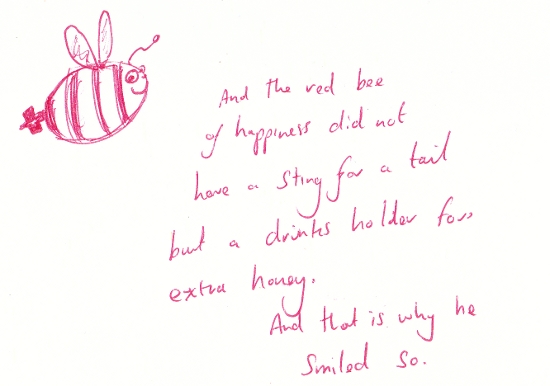 And the red bee
of happiness did not
have a sting for a tail
but a drinks holder for
extra honey.
And that is why he
smiled so.